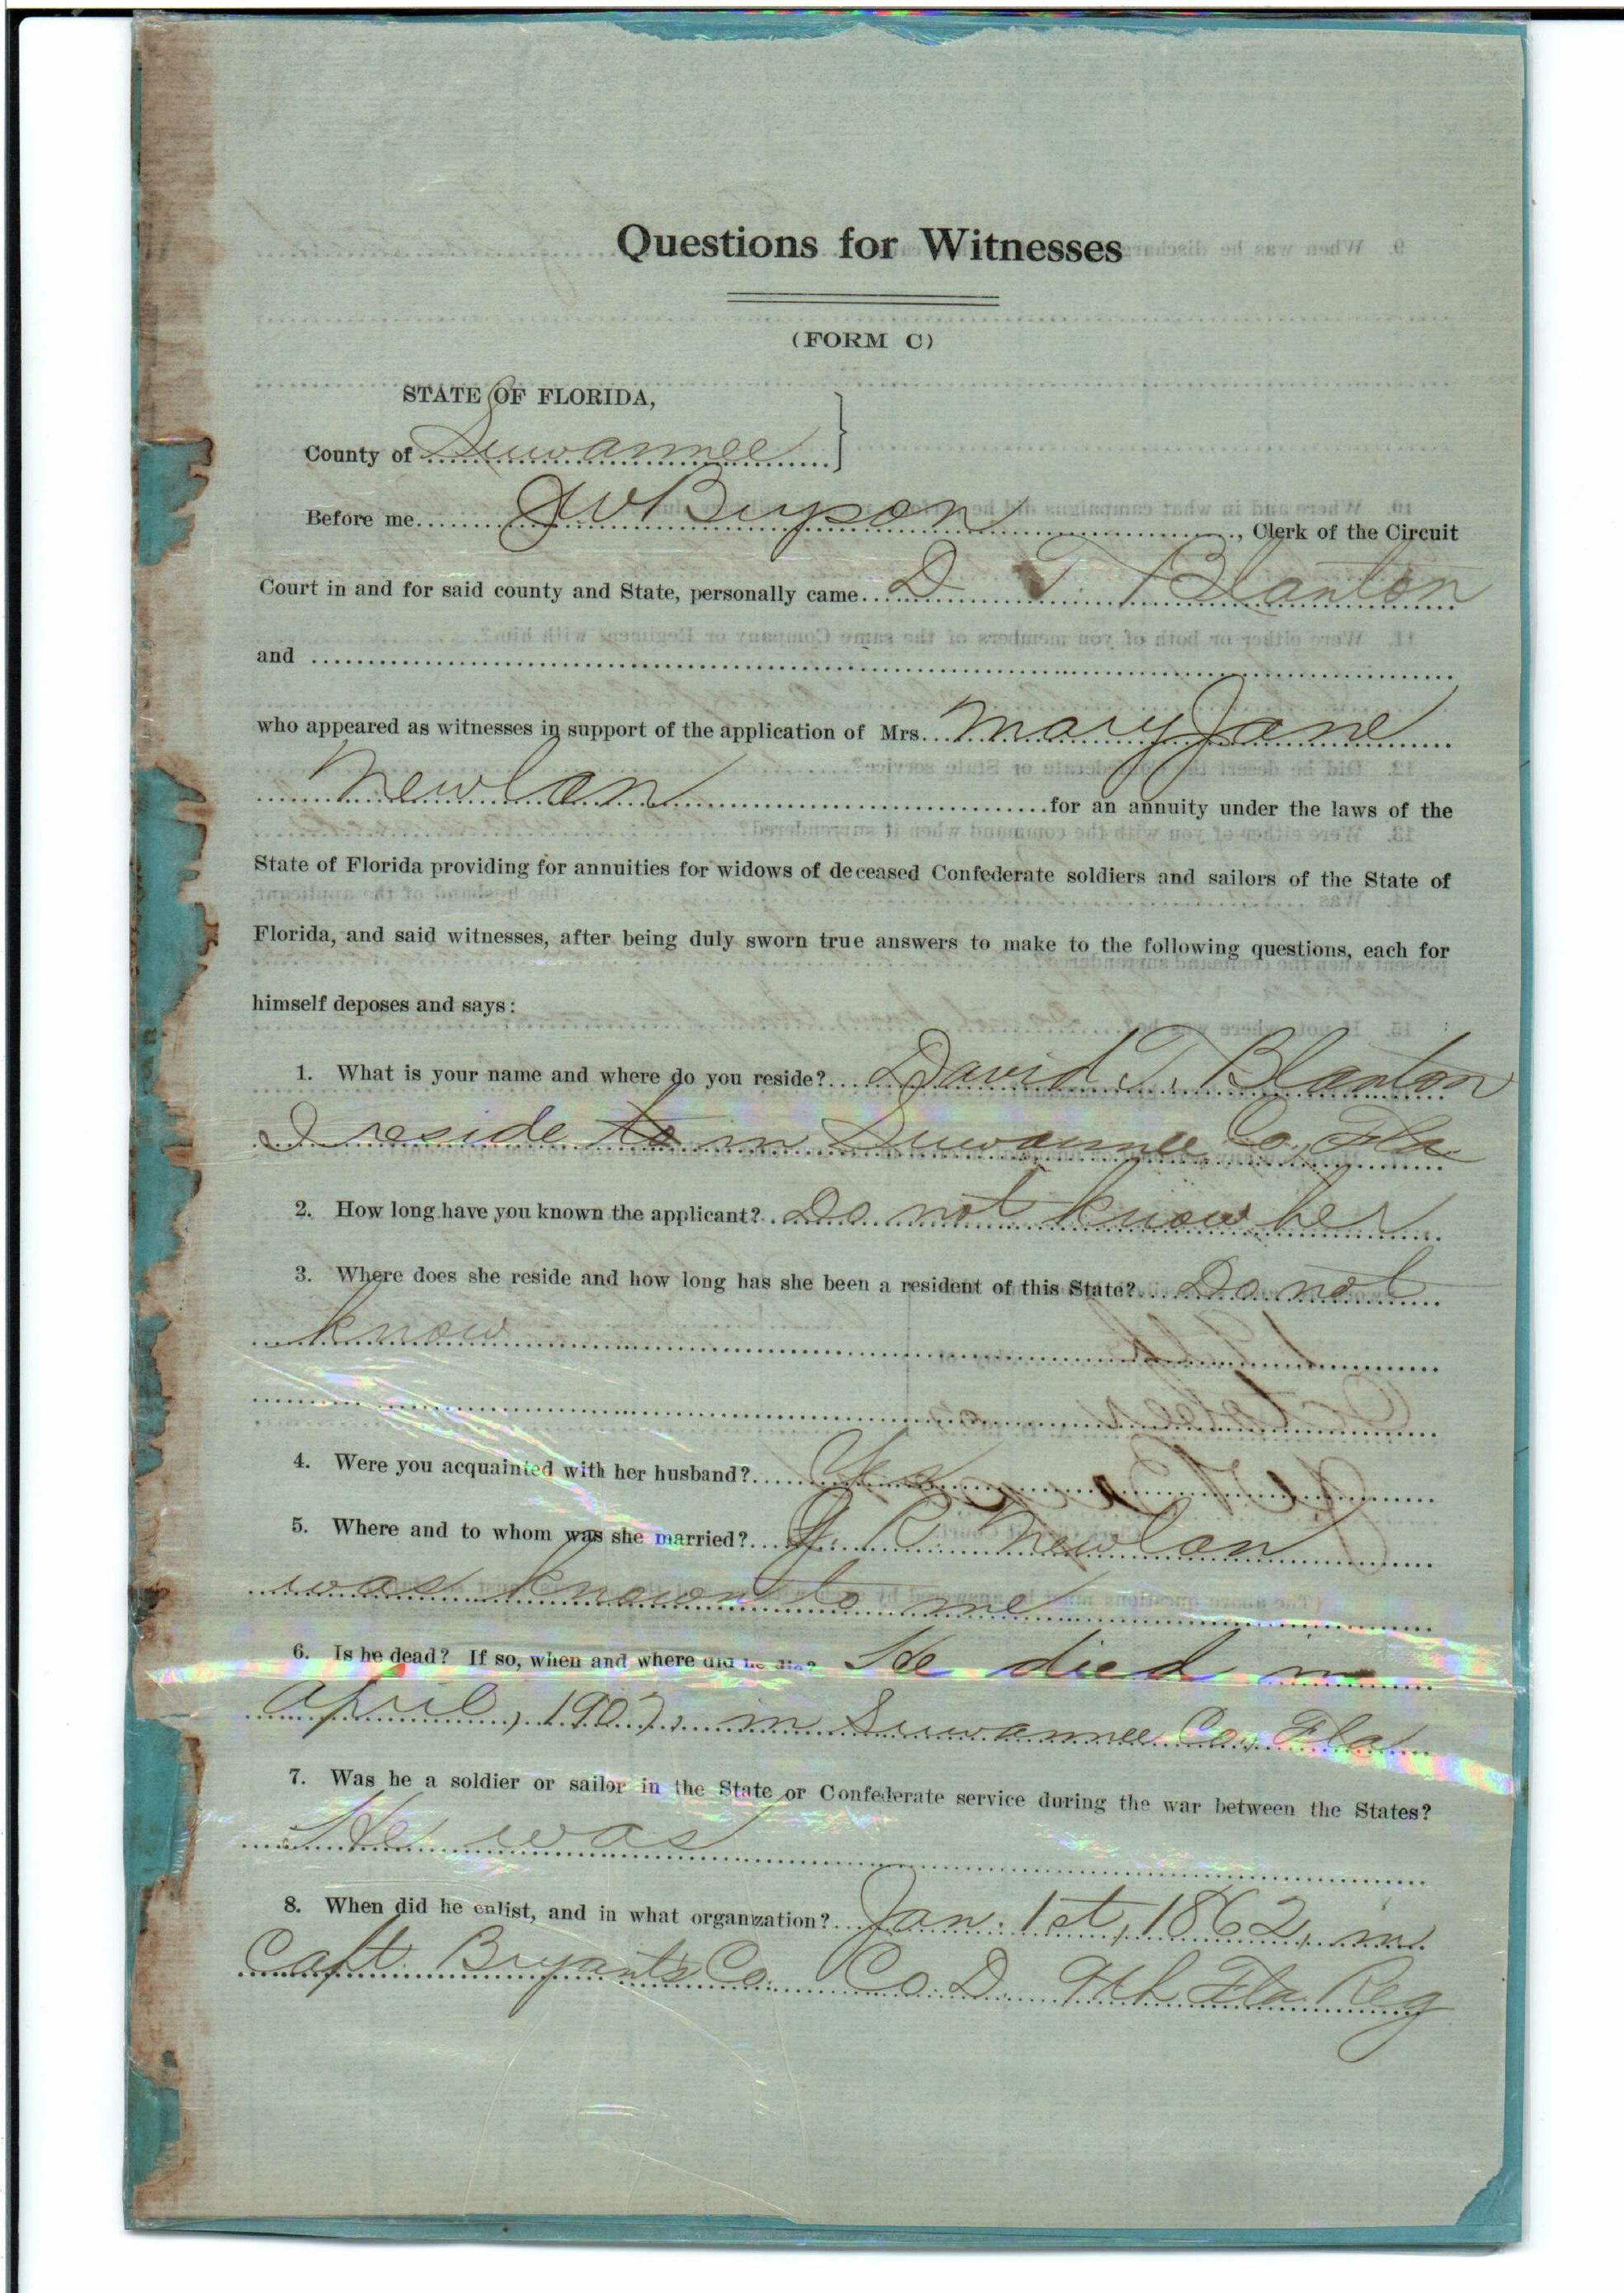 Questions for Witnesses
(FORM C)
STATE OF FLORIDA,
County of Suwannee
Before me J W Bryson, Clerk of the Circuit
Court in and for said county and State, personally came D. T. Blanton
and
who appeared as witnesses in support of the application of Mrs. Mary Jane
Newlan for an annuity under the laws of the
State of Florida providing for annuities for widows of deceased Confederate soldiers and sailors of the State of
Florida, and said witnesses, after being duly sworn true answers to make to the following questions, each for
himself deposes and says:
1. What is your name and where do you reside? David T. Blanton
I reside to in Suwannee Co, Fla
2. How long have you known the applicant? Do not know her
3. Where does she reside and how long has she been a resident of this State? Do not
know
4. Were you acquainted with her husband? Yes
5. Where and to whom was she married? J. R. Newlan
was known to me
6. Is he dead? If so, when and where did he die? He died in
April, 1907, in Suwannee Co, Fla
7. Was he a soldier or sailor in the State or Confederate service during the war between the States?
He was
8. When did he enlist, and in what organization? Jan. 1st, 1862, in
Capt. Bryant's Co. Co. D. 9th Fla. Reg